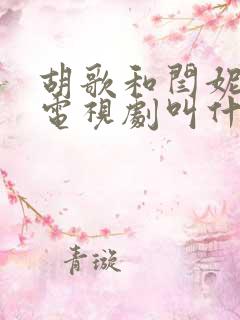 胡歌和閆妮
電視劇叫什
青璇